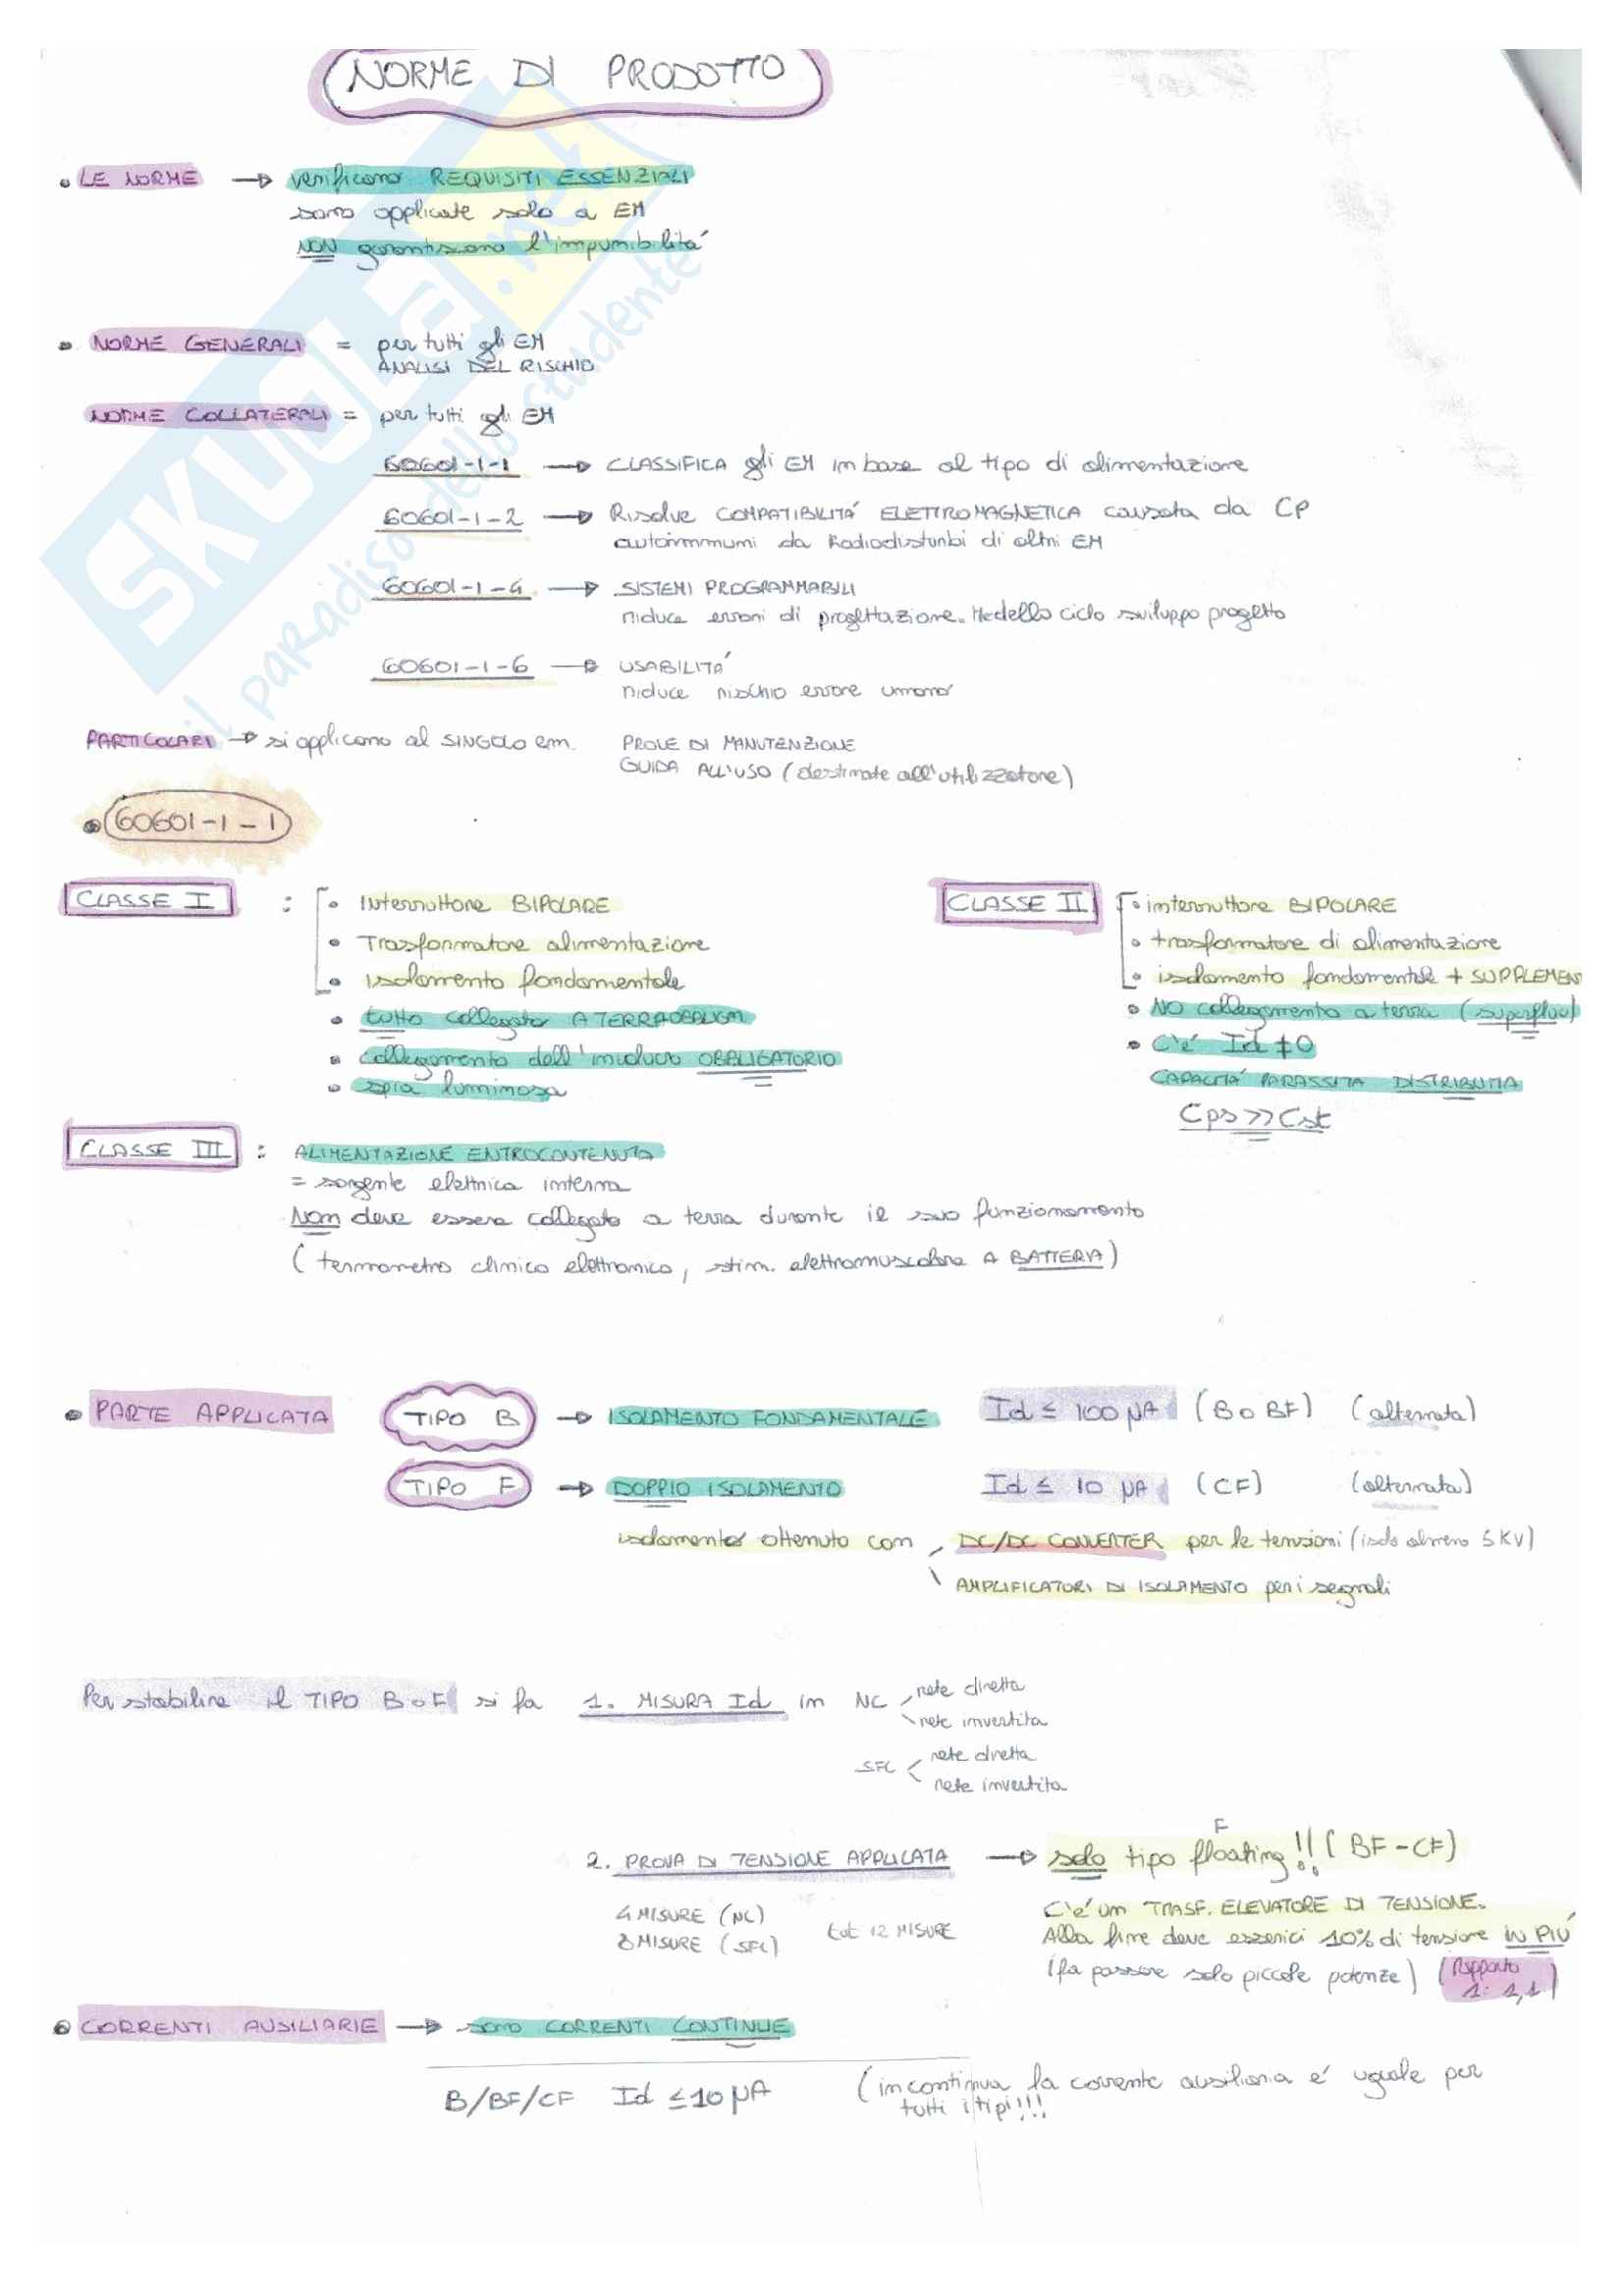 NORME DI PRODOTTO
• LE NORME → verificano REQUISITI ESSENZIALI
sono applicate solo a EM
NON garantiscono l'impunibilità
• NORME GENERALI = per tutti gli EM
ANALISI DEL RISCHIO
NORME COLLATERALI = per tutti gli EM
60601-1-1 → CLASSIFICA gli EM in base al tipo di alimentazione
60601-1-2 → Risolve COMPATIBILITÁ ELETTROMAGNETICA causata da CP
autoimmuni da Radiodisturbi di altri EM
60601-1-4 → SISTEMI PROGRAMMABILI
riduce errori di progettazione. Modello ciclo sviluppo progetto
60601-1-6 → USABILITÁ
riduce rischio errore umano
PARTICOLARI → si applicano al SINGOLO em. PROVE DI MANUTENZIONE
GUIDA ALL'USO (destinate all'utilizzatore)
• 60601-1-1
CLASSE I : • Interruttore BIPOLARE
• Trasformatore alimentazione
• Isolamento fondamentale
• tutto collegato A TERRA
• Collegamento dell'involucro OBBLIGATORIO
• spia luminosa
CLASSE II • interruttore BIPOLARE
• trasformatore di alimentazione
• isolamento fondamentale + SUPPLEMEN
• NO collegamento a terra (superfluo)
• C'é Id ≠ 0
CAPACITÁ PARASSITA DISTRIBUITA
Cps >> Cst
CLASSE III : ALIMENTAZIONE ENTROCONTENUTA
= sorgente elettrica interna
Non deve essere collegato a terra durante il suo funzionamento
(termometro clinico elettronico, stim. elettromuscolare A BATTERIA)
• PARTE APPLICATA TIPO B → ISOLAMENTO FONDAMENTALE Id ≤ 100 µA (B o BF) (alternata)
TIPO F → DOPPIO ISOLAMENTO Id ≤ 10 µA (CF) (alternata)
isolamento ottenuto con DC/DC CONVERTER per le tensioni (isola almeno 5 KV)
AMPLIFICATORI DI ISOLAMENTO per i segnali
Per stabilire il TIPO B o F si fa 1. MISURA Id in NC rete diretta
rete invertita
SFC < rete diretta
rete invertita
F
2. PROVA DI TENSIONE APPLICATA → solo tipo floating!! (BF-CF)
4 MISURE (NC)
8 MISURE (SFC)
tot 12 MISURE
C'é un TRASF. ELEVATORE DI TENSIONE.
Alla fine deve esserci 10% di tensione IN PIÚ
(fa passare solo piccole potenze) (Rapporto
1: 1,1)
• CORRENTI AUSILIARIE → sono CORRENTI CONTINUE
B/BF/CF Id ≤ 10 µA (in continua la corrente ausiliaria é uguale per
tutti i tipi!!!
SKUOLA.net
il paradiso dello studente